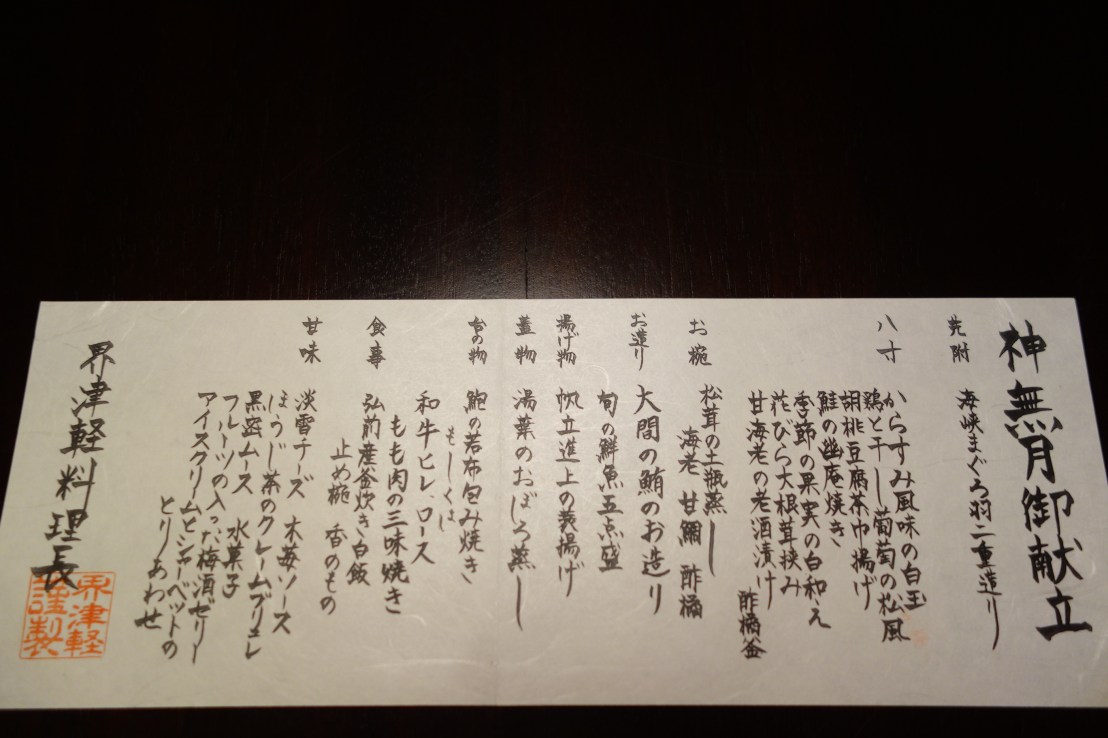 神無月御献立
先附
海峡まぐろ羽二重造り
八寸
からすみ風味の白玉
鶏と干し葡萄の松風
胡桃豆腐茶巾揚げ
鮭の幽庵焼き
季節の果実の白和え
花びら大根茸挟み
甘海老の老酒漬け
酢橘釜
お椀
松茸の土瓶蒸し
海老 甘鯛 酢橘
お造り
大間の鮪のお造り
旬の鮮魚五点盛
揚げ物
帆立進上の蓑揚げ
蓋物
湯葉のおぼろ蒸し
台の物
鮑の若布包み焼き
もしくは
和牛ヒレ、ロース
もも肉の三味焼き
食事
弘前産釜炊き白飯
止め椀 香のもの
甘味
淡雪チーズ 木苺ソース
ほうじ茶のクレームブリュレ
黒密ムース 水菓子
フルーツの入った梅酒ゼリー
アイスクリームとシャーベットの
とりあわせ
界津軽料理長
界津軽
謹製